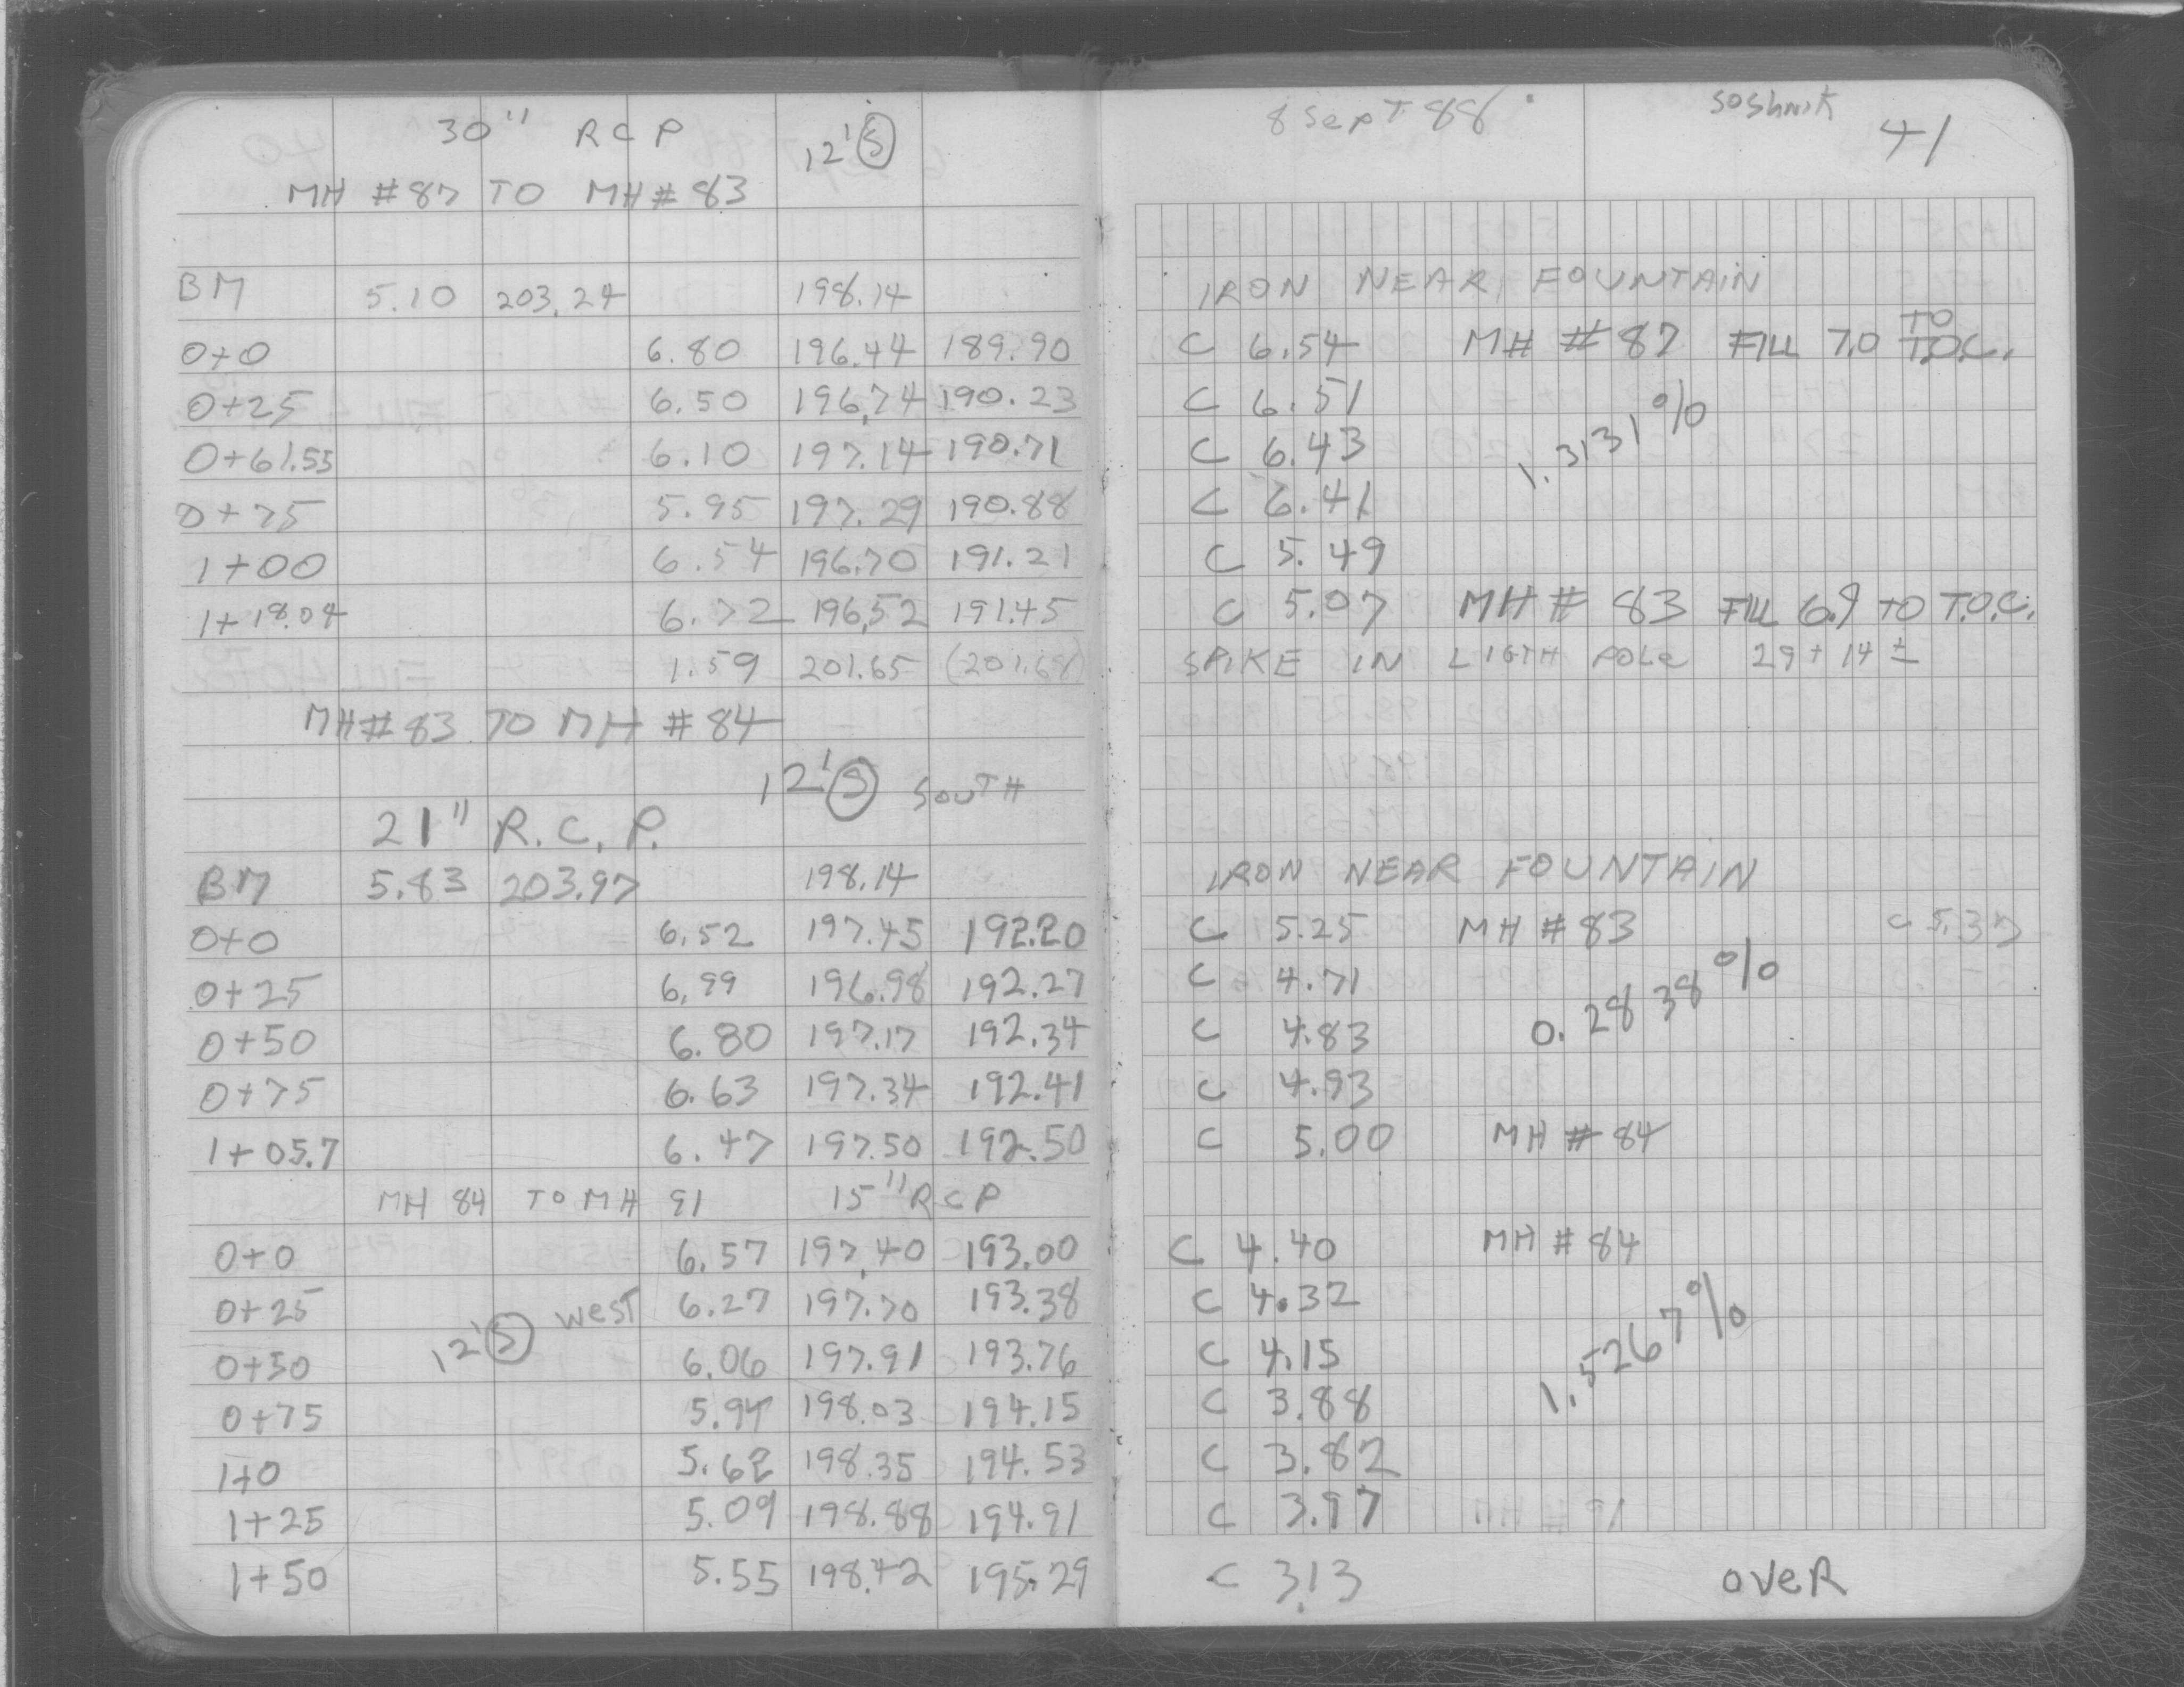 30" RCP 12' S
MH #87 TO MH #83
BM 5.10 203.24 198.14
0+0 6.80 196.44 189.90
0+25 6.50 196.74 190.23
0+61.55 6.10 197.14 190.71
0+75 5.95 197.29 190.88
1+00 6.54 196.70 191.21
1+18.04 6.72 196.52 191.45
1.59 201.65 (201.68)
MH #83 TO MH #84
12' S SOUTH
21" R.C.P.
BM 5.83 203.97 198.14
0+0 6.52 197.45 192.20
0+25 6.99 196.98 192.27
0+50 6.80 197.17 192.34
0+75 6.63 197.34 192.41
1+05.7 6.47 197.50 192.50
MH 84 TO MH 91 15" RCP
0+0 6.57 197.40 193.00
0+25 6.27 197.70 193.38
12' S west
0+50 6.06 197.91 193.76
0+75 5.94 198.03 194.15
1+0 5.62 198.35 194.53
1+25 5.09 198.88 194.91
1+50 5.55 198.42 195.29
8 Sept 88 Soshnik 41
IRON NEAR FOUNTAIN
C 6.54 MH #87 FILL 7.0 TO T.O.C.
C 6.51
C 6.43 1.3131%
C 6.41
C 5.49
C 5.07 MH # 83 FILL 6.9 TO T.O.C.
SPIKE IN LIGTH POLE 29+14±
IRON NEAR FOUNTAIN
C 5.25 MH #83 C 5.37
C 4.71
C 4.83 0.2838%
C 4.93
C 5.00 MH #84
C 4.40 MH #84
C 4.32
C 4.15 1.5267%
C 3.88
C 3.82
C 3.97 MH #91
C 3.13 OVER